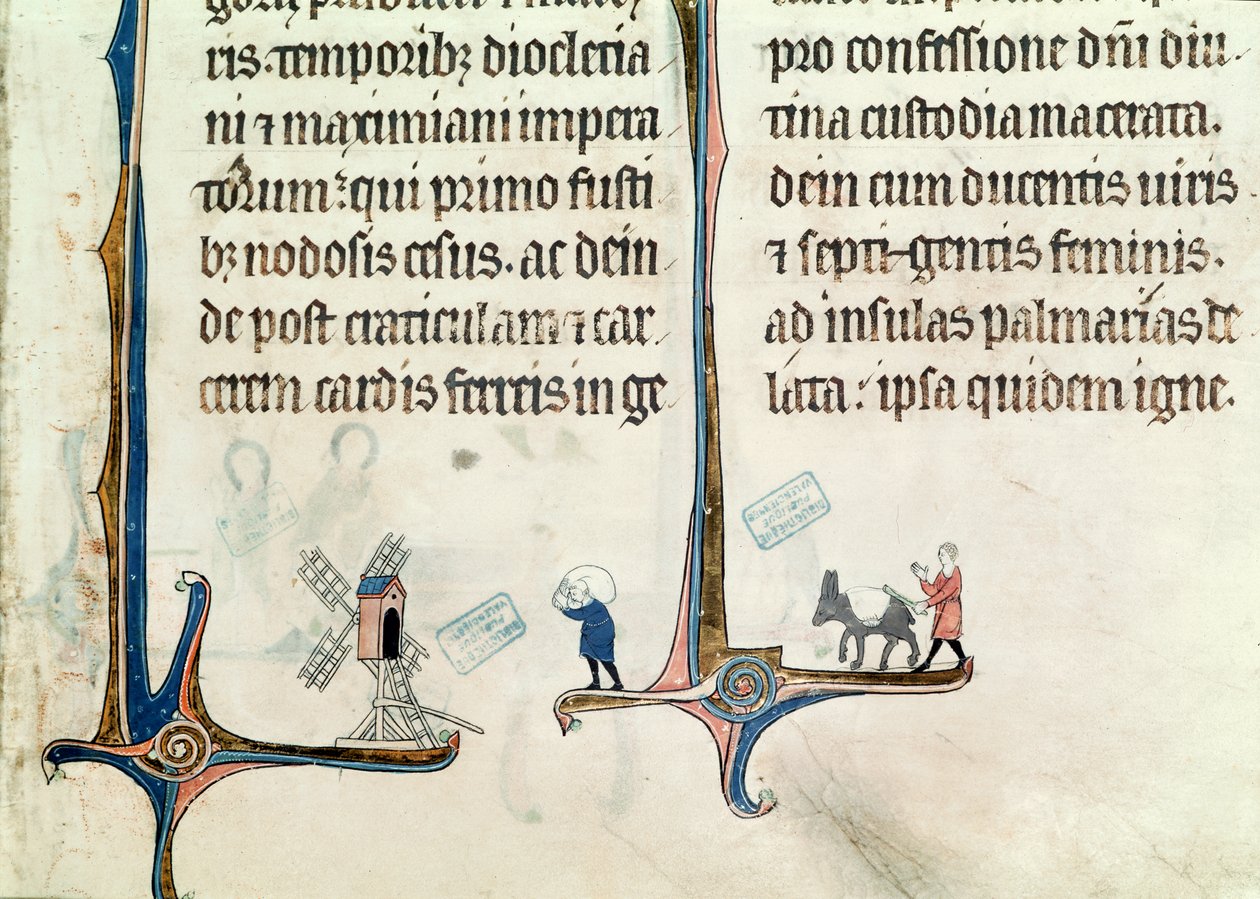 ris. temporibꝫ diocletia
ni ⁊ maximiani impera
torum: qui primo fusti
bꝫ nodosis cesus. ac dein
de post craticulam ⁊ car
cerem cardis ferreis in ge
pro confessione dñi diu
tina custodia macerata.
dein cum ducentis uiris
⁊ septi-gentis feminis.
ad insulas palmarias de
lata: ipsa quidem igne.
BIBLIOTHÈQUE
PUBLIQUE
VALENCIENNES
BIBLIOTHÈQUE
PUBLIQUE
VALENCIENNES